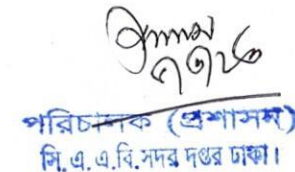 পরিচালক (প্রশাসন)
সি. এ. এ. বি. সদর দপ্তর ঢাকা।